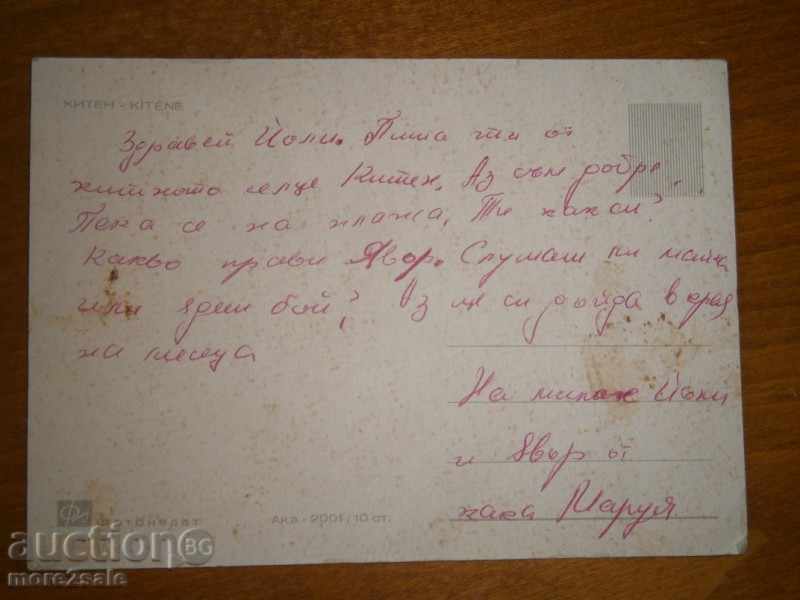 КИТЕН - KITENE
Здравей Йоли. Пиша ти от
китното селце Китен. Аз съм добре.
Пека се на плажа, Ти как си?
Какво прави Явор. Слушаш ли майка
или ядеш бой? Аз ще си дойда в края
на месеца
На милата Йоли
и Явор от
кака Маруся
Фотоиздат
АКА - 2001/10 ст.
auction BG
more2sale